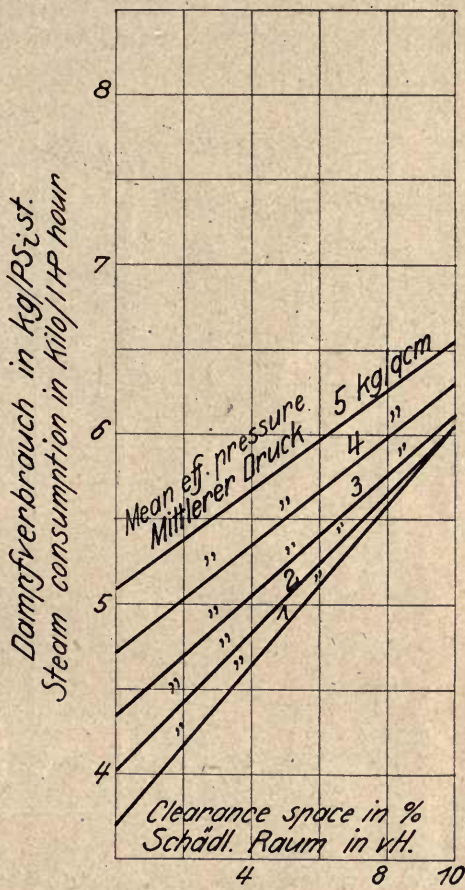 8
7
6
5
4
Dampfverbrauch in kg/PSi st.
Steam consumption in Kilo/IHP hour
Mean eff. pressure
Mittlerer Druck
5 kg/qcm
" 4 "
" " 3 "
" " 2 "
" " 1 "
"
Clearance space in %
Schädl. Raum in vH.
4 8 10